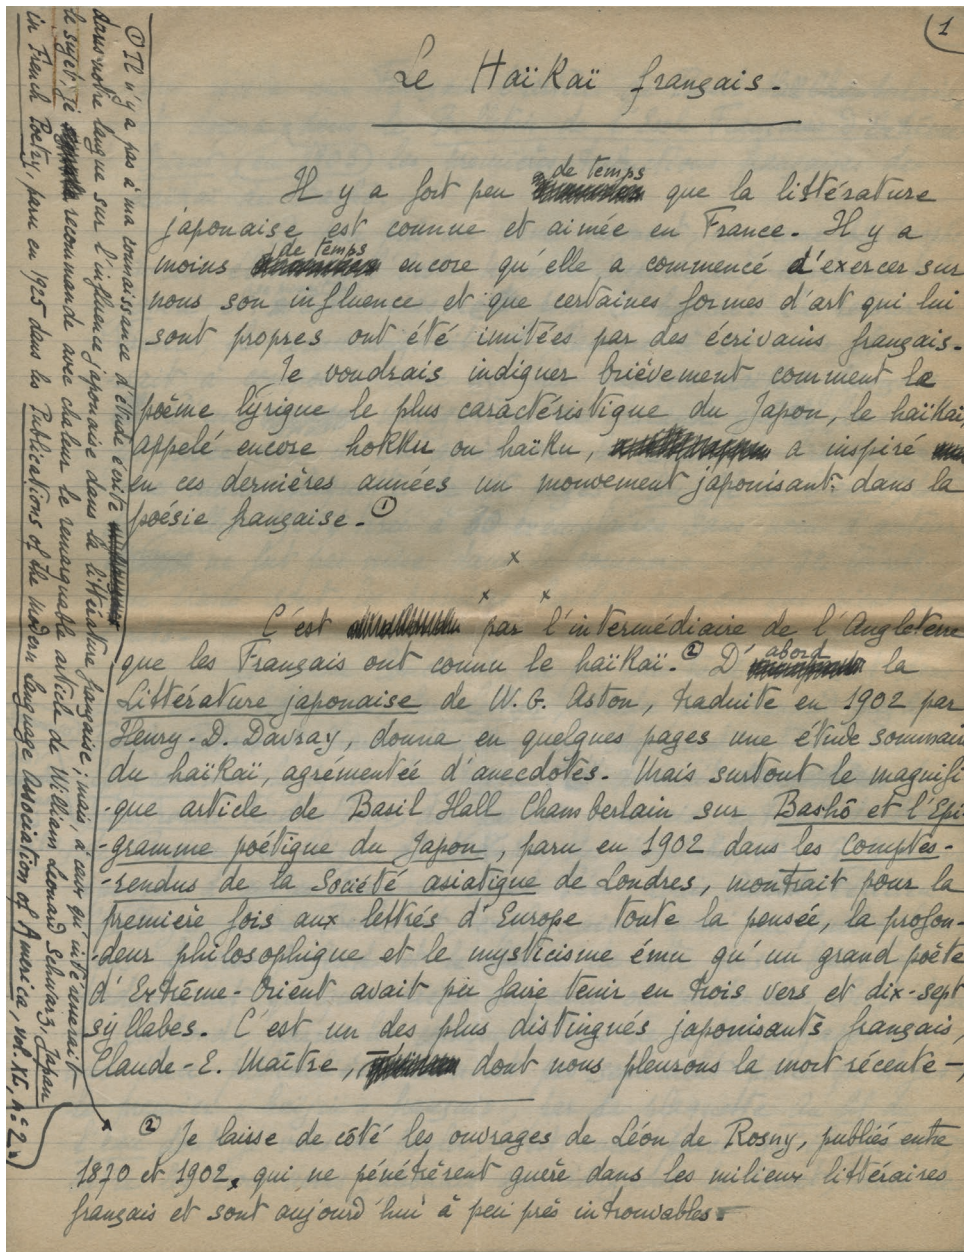 1
Le Haïkaï français.
Il y a fort peu de temps que la littérature
japonaise est connue et aimée en France. Il y a
moins de temps encore qu'elle a commencé d'exercer sur
nous son influence et que certaines formes d'art qui lui
sont propres ont été imitées par des écrivains français.
Je voudrais indiquer brièvement comment le
poème lyrique le plus caractéristique du Japon, le haïkaï,
appelé encore hokku ou haïku, a inspiré
en ces dernières années un mouvement japonisant dans la
poésie française. ①
x
x x
C'est par l'intermédiaire de l'Angleterre
que les Français ont connu le haïkaï. ② D'abord la
Littérature japonaise de W. G. Aston, traduite en 1902 par
Henry-D. Davray, donna en quelques pages une étude sommaire
du haïkaï, agrémentée d'anecdotes. Mais surtout le magnifi-
-que article de Basil Hall Chamberlain sur Bashô et l'Epi-
-gramme poétique du Japon, paru en 1902 dans les Comptes-
-rendus de la Société asiatique de Londres, montrait pour la
première fois aux lettrés d'Europe toute la pensée, la profon-
-deur philosophique et le mysticisme ému qu'un grand poète
d'Extrême-Orient avait pu faire tenir en trois vers et dix-sept
syllabes. C'est un des plus distingués japonisants français,
Claude-E. Maître, dont nous pleurons la mort récente –,
② Je laisse de côté les ouvrages de Léon de Rosny, publiés entre
1870 et 1902, qui ne pénétrèrent guère dans les milieux littéraires
français et sont aujourd'hui à peu près introuvables.
① Il n'y a pas à ma connaissance d'étude écrite
dans notre langue sur l'influence japonaise dans la littérature française; mais, à ceux qu'intéresserait
le sujet, je recommande avec chaleur le remarquable article de William Leonard Schwarz, Japan
in French Poetry, paru en 1925 dans les Publications of the Modern Language Association of America, vol. XL, n° 2.